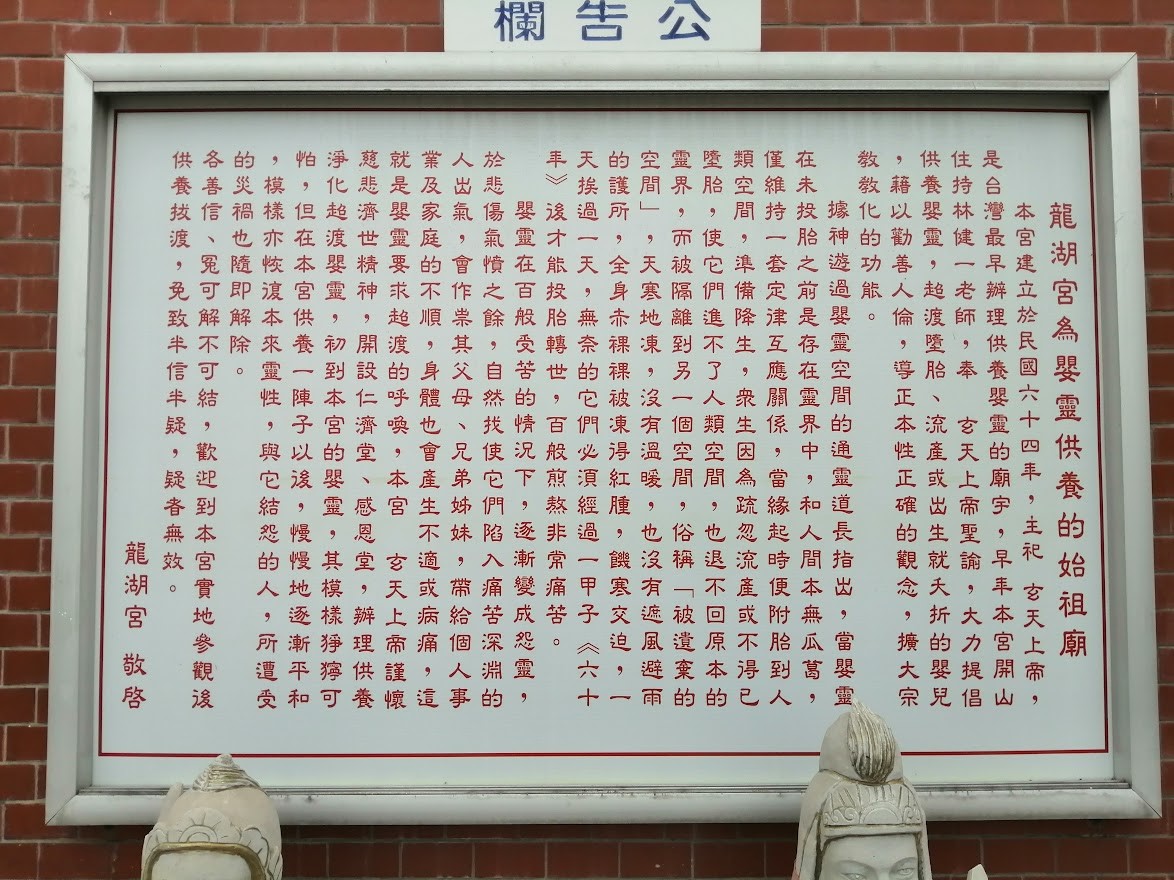 公告欄
龍湖宮為嬰靈供養的始祖廟
本宮建立於民國六十四年，主祀　玄天上帝，
是台灣最早辦理供養嬰靈的廟宇，早年本宮開山
住持林健一老師，奉　玄天上帝聖諭，大力提倡
供養嬰靈，超渡墮胎、流產或出生就夭折的嬰兒
，藉以勸善人倫，導正本性正確的觀念，擴大宗
教教化的功能。
據神遊過嬰靈空間的通靈道長指出，當嬰靈
在未投胎之前是存在靈界中，和人間本無瓜葛，
僅維持一套定律互應關係，當緣起時便附胎到人
類空間，準備降生，眾生因為疏忽流產或不得已
墮胎，使它們進不了人類空間，也退不回原本的
靈界，而被隔離到另一個空間，俗稱「被遺棄的
空間」，天寒地凍，沒有溫暖，也沒有遮風避雨
的護所，全身赤裸裸被凍得紅腫，饑寒交迫，一
天挨過一天，無奈的它們必須經過一甲子《六十
年》後才能投胎轉世，百般煎熬非常痛苦。
嬰靈在百般受苦的情況下，逐漸變成怨靈，
於悲傷氣憤之餘，自然找使它們陷入痛苦深淵的
人出氣，會作祟其父母、兄弟姊妹，帶給個人事
業及家庭的不順，身體也會產生不適或病痛，這
就是嬰靈要求超渡的呼喚，本宮　玄天上帝謹懷
慈悲濟世精神，開設仁濟堂、感恩堂，辦理供養
淨化超渡嬰靈，初到本宮的嬰靈，其模樣猙獰可
怕，但在本宮供養一陣子以後，慢慢地逐漸平和
，模樣亦恢復本來靈性，與它結怨的人，所遭受
的災禍也隨即解除。
各善信、冤可解不可結，歡迎到本宮實地參觀後
供養拔渡，免致半信半疑，疑者無效。
龍湖宮　敬啓